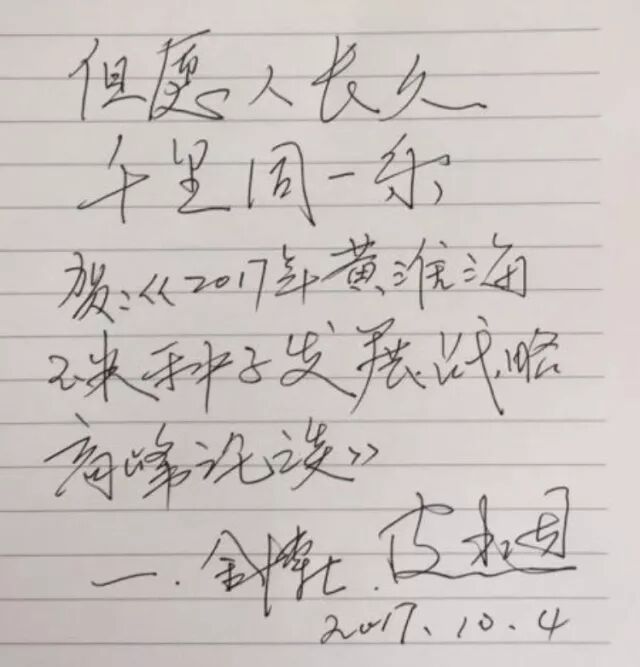 但愿人长久
千里同一乐
贺:《2017年黄淮海
玉米种子发展战略
高峰论谈》
一.金博士.皮
2017.10.4